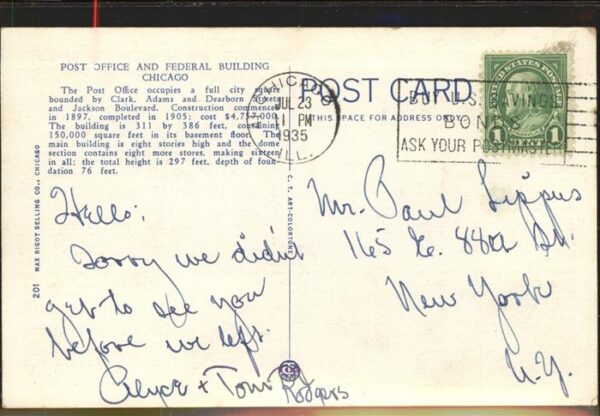 POST OFFICE AND FEDERAL BUILDING
CHICAGO
The Post Office occupies a full city square
bounded by Clark, Adams and Dearborn Streets
and Jackson Boulevard. Construction commenced
in 1897, completed in 1905; cost $4,757,000.
The building is 311 by 386 feet, containing
150,000 square feet in its basement floor. The
main building is eight stories high and the dome
section contains eight more stories, making sixteen
in all; the total height is 297 feet, depth of foun-
dation 76 feet.
201 MAX RIGOT SELLING CO., CHICAGO
Hello:
Sorry we didn't
get to see you
before we left.
+ Tom
Rodgers
C. T. ART-COLORTONE
CHICAGO
JUL 23
11 PM
1935
ILL.
POST CARD
THIS SPACE FOR ADDRESS ONLY
BUY U.S. SAVINGS
BONDS
ASK YOUR POSTMASTER
UNITED STATES POSTAGE
1 1
Mr. Paul Lippus
165 E. 88th St.
New York
N.Y.